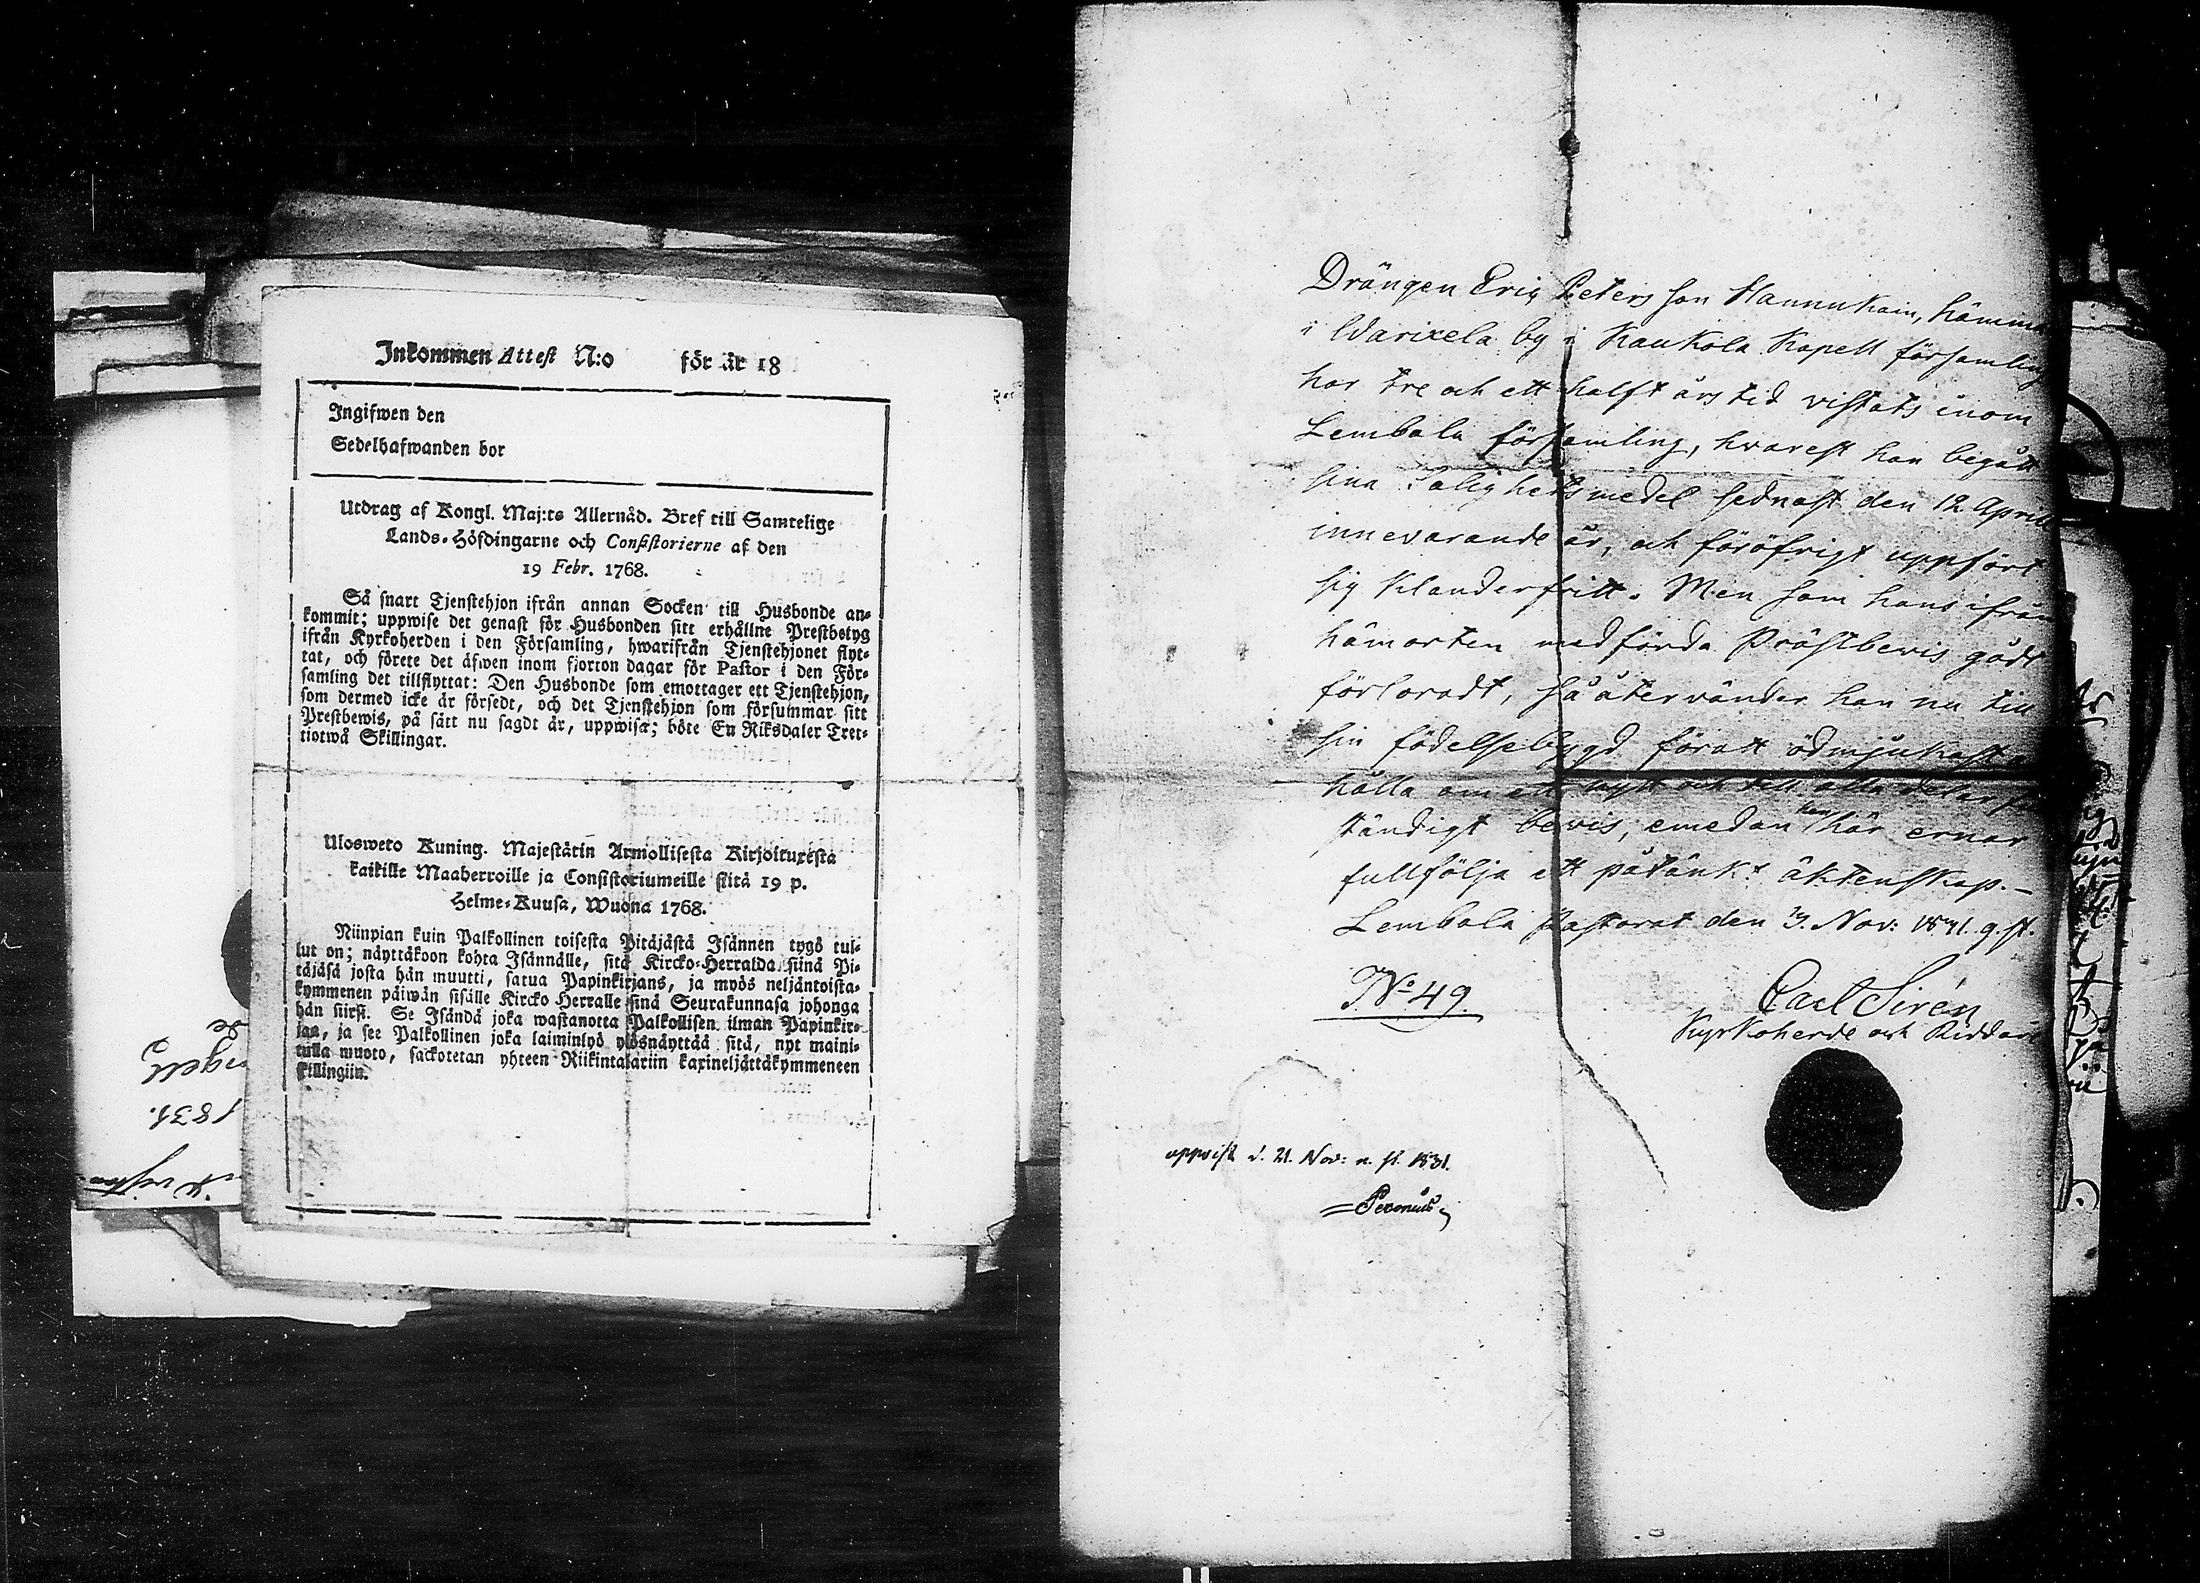 Inkommen Attest N:o för år 18
Ingifwen den
Sedelhafwanden bor
Utdrag af Kongl. Maj:ts Allernåd. Bref till Samtelige
Lands-Höfdingarne och Consistorierne af den
19 Febr. 1768.
Så snart Tjenstehjon ifrån annan Socken till Husbonde an-
kommit; uppwise det genast för Husbonden sitt erhållne Prestbetyg
ifrån Kyrkoherden i den Församling, hwarifrån Tjenstehjonet flyt-
tat, och förete det äfwen inom fjorton dagar för Pastor i den För-
samling det tillflyttat: Den Husbonde som emottager ett Tjenstehjon,
som dermed icke är försedt, och det Tjenstehjon som försummar sitt
Prestbewis, på sätt nu sagdt är, uppwisa; böte En Riksdaler Tret-
tiotwå Skillingar.
Ulosweto Kuning. Majestätin Armollisesta Kirjoituxesta
kaikille Maaherroille ja Consistoriumeille siitä 19 p.
Helme-Kuusa, Wuona 1768.
Niinpian kuin Palkollinen toisesta Pitäjästä Isännen tygö tul-
lut on; näyttäkoon kohta Isännälle, sitä Kircko-Herralda siinä Pi-
täjäsä josta hän muutti, satua Papinkirjans, ja myös neljäntoista-
kymmenen päiwän sisälle Kircko Herralle siinä Seurakunnasa johonga
hän siirsi. Se Isändä joka wastanotta Palkollisen ilman Papinkir-
jaa, ja see Palkollinen joka laiminlyö ylösnäyttää sitä, nyt maini-
tulla muoto, sackotetan yhteen Riikintalariin kaxineljättäkymmeneen
killingiin.
1831.
Drängen Eric Petersson Hannukain, hämma
i Warixela by i Kaukola Kapell församling
har tre och ett halft års tid vistats inom
Lembala församling, hvarest han begått
sina Salighetsmedel sednast den 12 April
innevarande år, och föröfrigt uppfört
sig klanderfritt. Men som hans ifrån
hämorten medförda Pröstbevis gådt
förloradt, så återvänder han nu till
sin födelsebygd föratt ödmjukast
hålla om ett nytt och till alla delar
ständigt bevis, emedan han här ernar
fullfölja ett påtänkt äktenskap.-
Lembala Pastorat den Nov: 1831. g. st.
No 49.
Carl Sirén
Kyrkoherde och Riddare
uppvist d. 21. Nov: n. st. 1831.